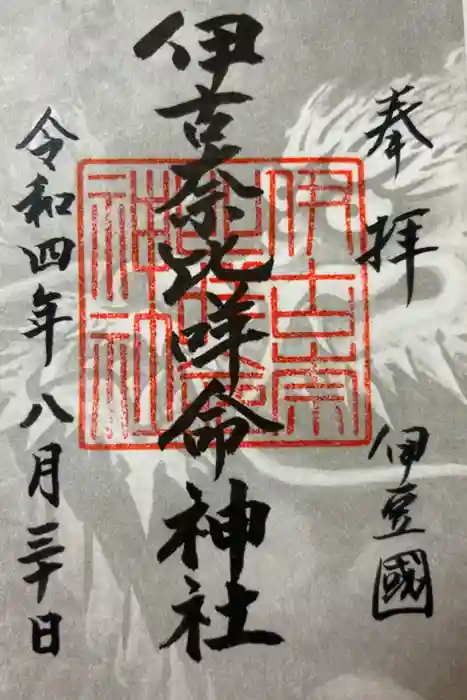 奉拝
伊豆國
伊古奈比咩命神社
伊古奈比咩命神社
令和四年八月三十日